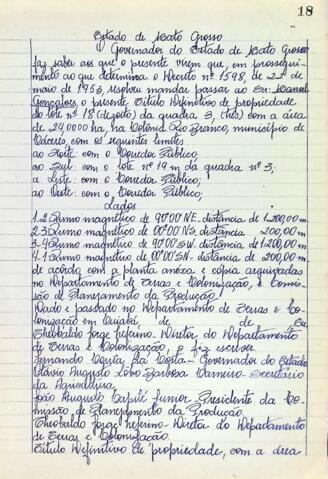 18
Estado de Mato Grosso
Governador do Estado de Mato Grosso
faz saber aos que o presente virem que, em prossegui-
mento ao que determina o Decreto nº 1598, de 22 de
maio de 1953, resolveu mandar passar ao Sr: Manoel
Gonçalves, o presente Titulo Definitivo de propriedade
do lote nº 18 (dezoito) da quadra 3, (três) com a área
de 24,0000 ha, na Colonia Rio Branco, municipio de
Cáceres, com os seguintes limites
ao Norte: com o Corredor Público;
ao Sul: com o lote nº 19 m da quadra nº 3;
a Leste: com o Corredor Público;
ao Oeste: com o Corredor Público;
Lados
1.2 Rumo magnético de 90°00'NE. distância de 1.200,00 m
2.3 Rumo magnético de 00°00'NS. distância 200,00 m
3.4 Rumo magnético de 90°00'SW. distância de 1.200,00 m
4.1 Rumo magnético de 00°00'SN. distância de 200,00 m
de acôrdo com a planta anéxa e cópia arquizadas
no Departamento de Terras e Colonização, e Comis-
são de Planejamento da Produção.
Dado e passado no Departamento de Terras e Co-
lonização em Cuiabá de de Eu
Theobaldo Jorge Diretor do Departamento
de Terras e Colonização, o fiz escrever
Fernando Corrêa da Costa - Governador do Estado
Otávio Augusto Lobo Barbosa Carneiro - Secretário
da Agricultura.
João Augusto Capilé Junior - Presidente da Co-
missão de Planejamento da Produção.
Theobaldo Jorge Diretor do Departamento
de Terras e Colonização.
Titulo Definitivo de propriedade, com a área